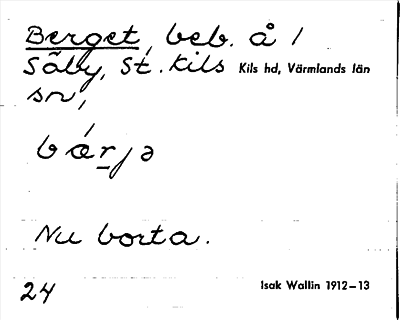 Berget, beb. å 1
Säby, St. Kils Kils hd, Värmlands län
sn,
bǽrjə
Nu borta.
24 Isak Wallin 1912–13